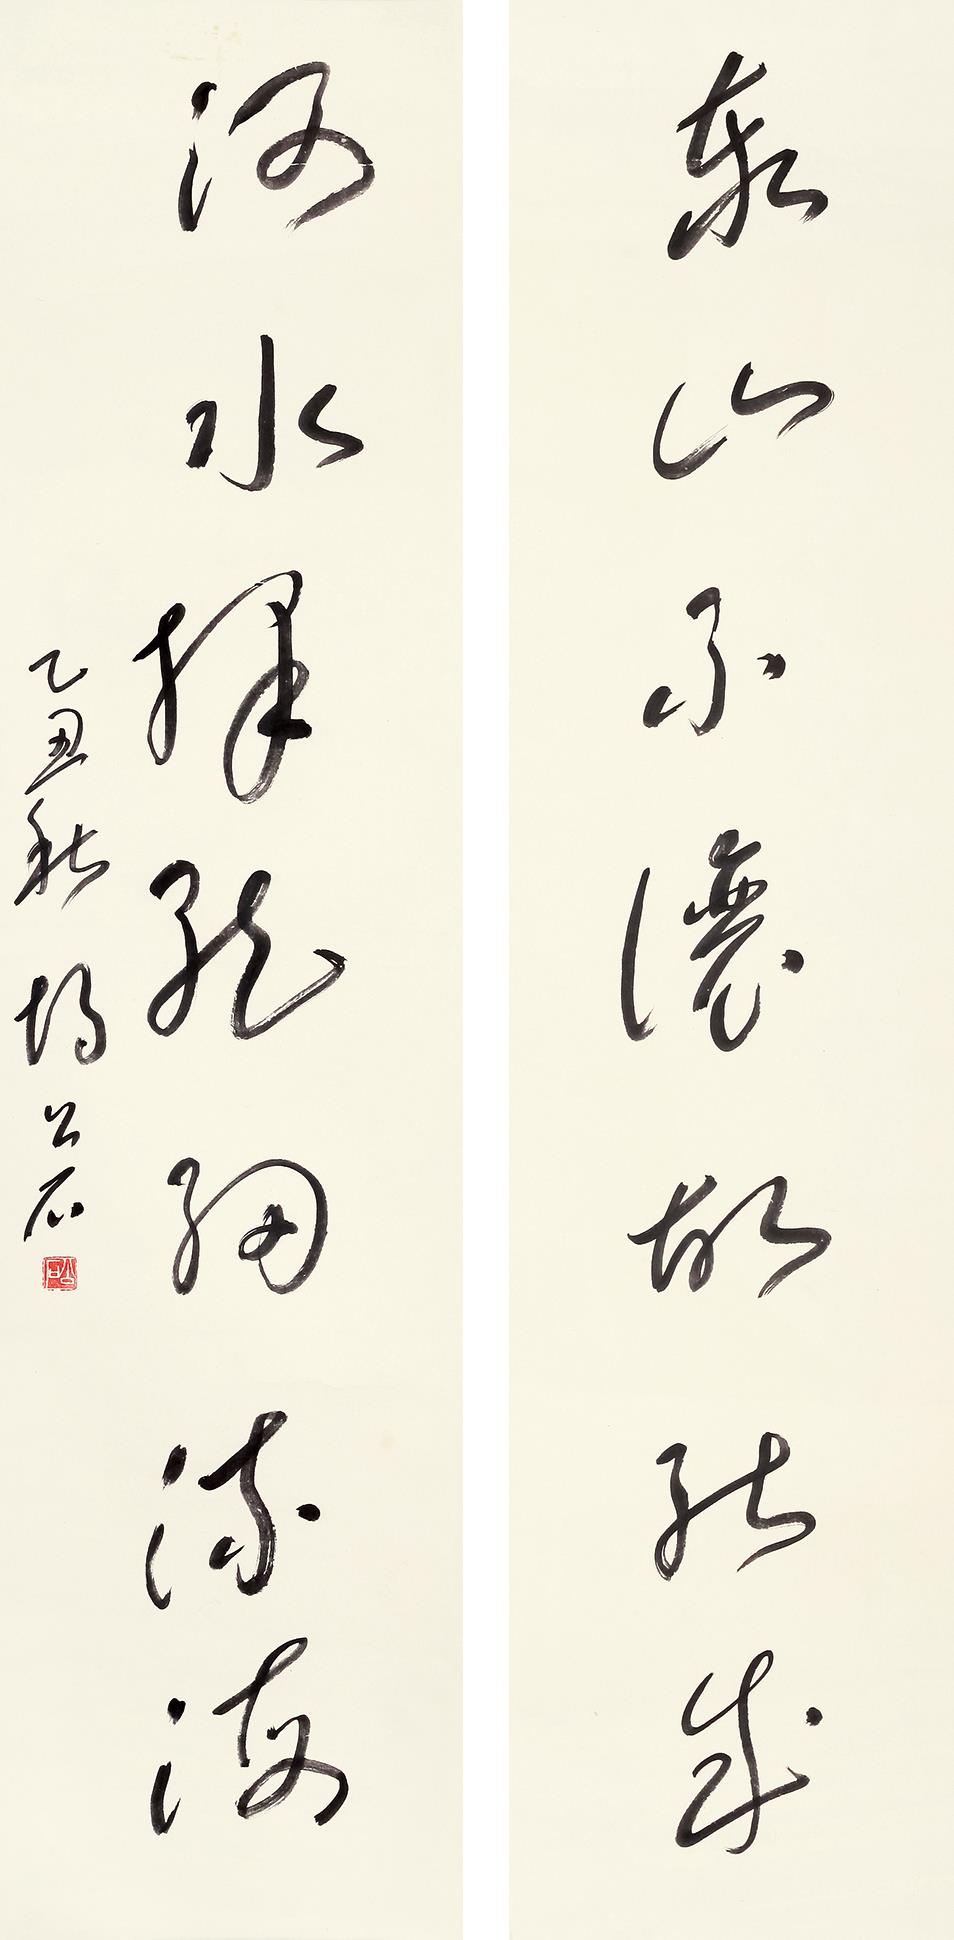 泰山不讓故能成
河水擇細流海
乙丑秋 楊公石